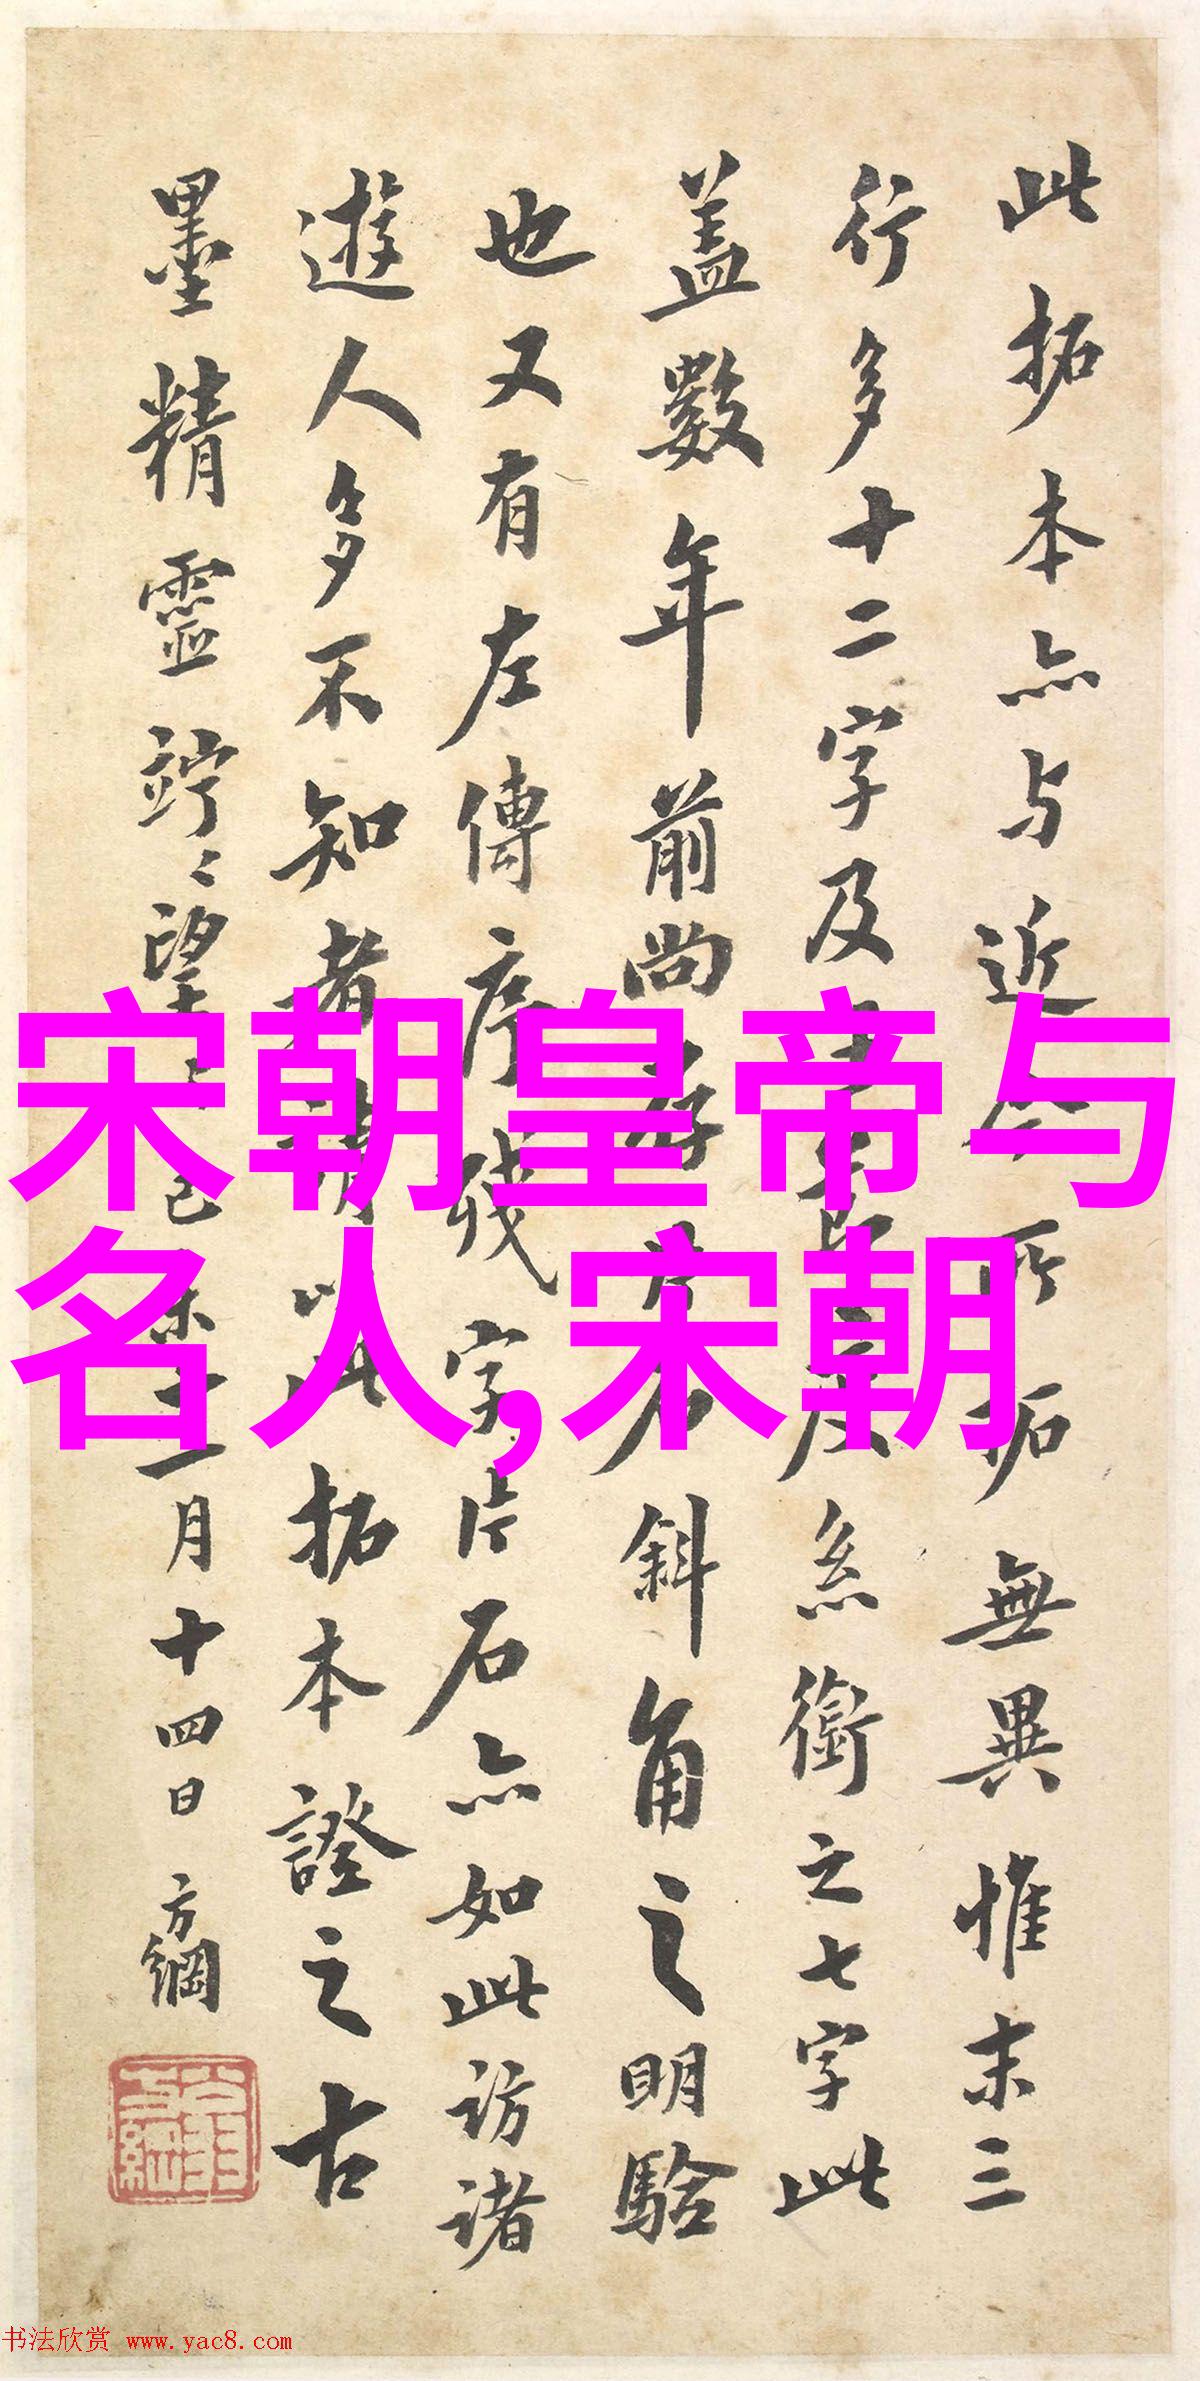 此拓本亦与近今所拓無異惟末三
行多十二字及 及系銜之七字此
盖數年前尚存片石斜角之明驗
也又有左傳序殘字片石亦如此訪諸
遊人多不知者 此拓本證之古
墨精靈竚〻望 己未十一月十四日方綱
宋朝皇帝与
名人,宋朝
书法欣赏 www.yac8.com